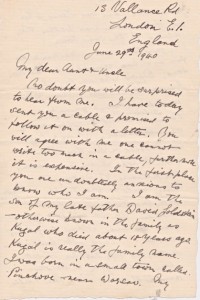 13 Vallance Rd
London E.1.
England
June 29th 1940
My dear Aunt & Uncle
No doubt you will be surprised
to hear from me. I have today
sent you a cable & promise to
follow it on with a letter. You
will agree with me one cannot
write too much in a cable, furthermore
it is expensive. In the first place
you are undoubtedly anxious to
know who I am. I am the
son of my late father David Goldstein
otherwise known in the family as
Kagal who died about 18 years ago.
Kagal is really the family name.
I was born in a small town called
near Warsaw. My